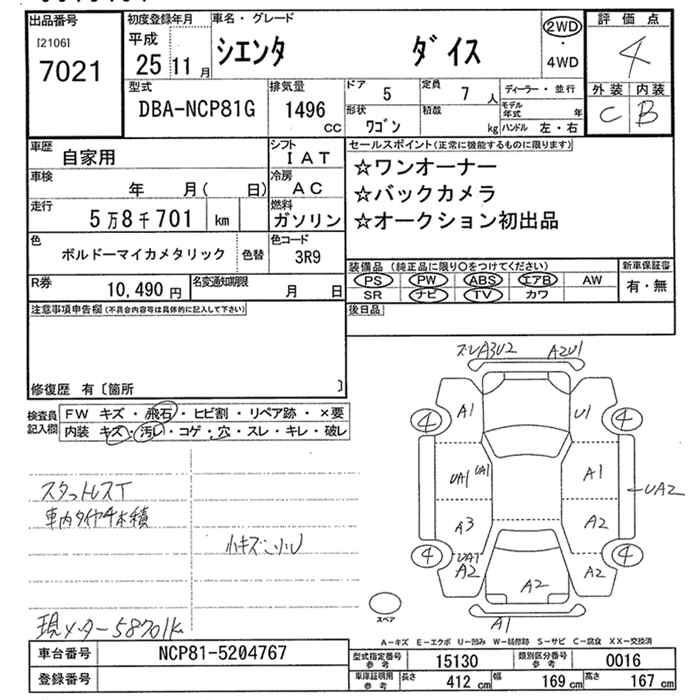 出品番号 初度登録年月 車名・グレード 評価点
[2106] 平成 シエンタ ダイス 2WD ・ 4WD 4
7021 25 11月
型式 排気量 ドア 5 定員 7人 ディーラー・並行 外装 内装
DBA-NCP81G 1496 CC 形状 ワゴン 積載 kg モデル年式 年 ハンドル 左・右 C B
車歴 自家用 シフト IAT セールスポイント(正常に機能するものに限ります)
車検 年 月( 日) 冷房 AC ☆ワンオーナー
☆バックカメラ
走行 5万8千701 km 燃料 ガソリン ☆オークション初出品
色 ボルドーマイカメタリック 色替 色コード 3R9
装備品(純正品に限り○をつけてください) 新車保証書
PS PW ABS エアB AW 有・無
SR ナビ TV カワ
R券 10,490円 名変通知期限 月 日
注意事項申告欄(不具合内容等は具体的に記入して下さい) 後日品
修復歴 有〔箇所 〕
検査員記入欄 FW キズ・飛石・ヒビ割・リペア跡・×要
内装 キズ・汚い・コゲ・穴・スレ・キレ・破レ
A2U1
A1 U1
4 4
UA1 UA1 A1
UA2
A3 A2
4 UA1 4
A2 A2 A2
A1
スタットレスT
車内タイヤ4本積
小キズ
現メーター58701k
スペア
A-キズ E-エクボ U-凹み W-補修跡 S-サビ C-腐食 XX-交換済
車台番号 NCP81-5204767 型式指定番号 参考 15130 類別区分番号 参考 0016
登録番号 車庫証明用 参考 長さ 412 cm 幅 169 cm 高さ 167 cm